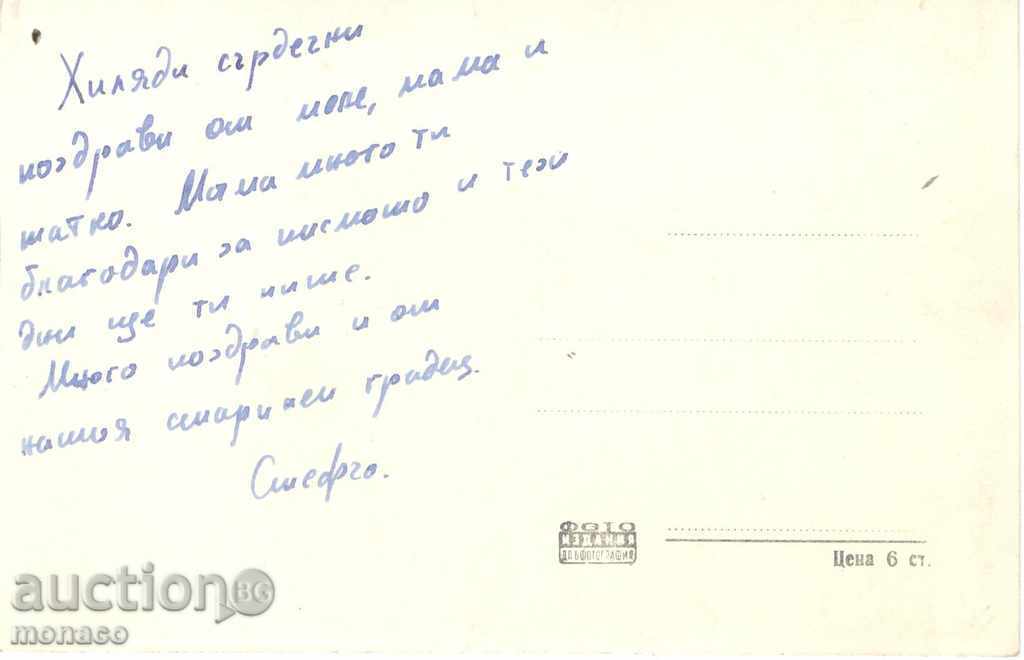 Хиляди сърдечни
поздрави от мене, мама и
татко. Мама много ти
благодари за писмото и тези
дни ще ти пише.
Много поздрави и от
нашия старинен градец.
Стефчо.
ФОТО
ИЗДАНИЯ
ДП БФОТОГРАФИЯ
Цена 6 ст.
auction.BG
monaco